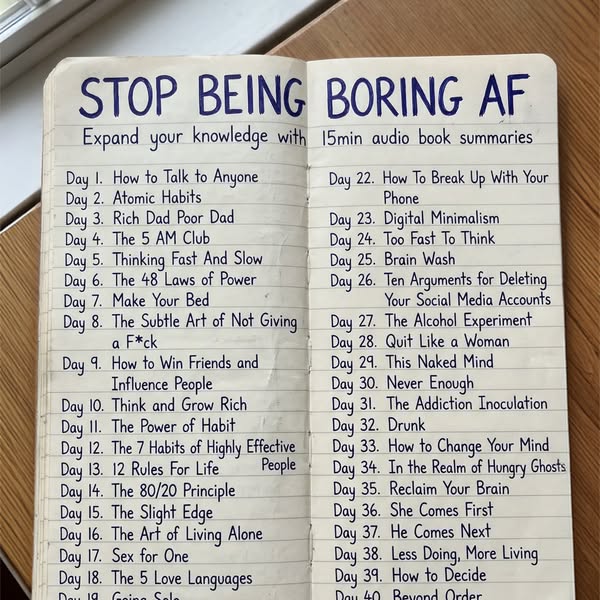 STOP BEING BORING AF
Expand your knowledge with 15min audio book summaries
Day 1. How to Talk to Anyone
Day 2. Atomic Habits
Day 3. Rich Dad Poor Dad
Day 4. The 5 AM Club
Day 5. Thinking Fast And Slow
Day 6. The 48 Laws of Power
Day 7. Make Your Bed
Day 8. The Subtle Art of Not Giving
a F*ck
Day 9. How to Win Friends and
Influence People
Day 10. Think and Grow Rich
Day 11. The Power of Habit
Day 12. The 7 Habits of Highly Effective
People
Day 13. 12 Rules For Life
Day 14. The 80/20 Principle
Day 15. The Slight Edge
Day 16. The Art of Living Alone
Day 17. Sex for One
Day 18. The 5 Love Languages
Day 19. Going Solo
Day 22. How To Break Up With Your
Phone
Day 23. Digital Minimalism
Day 24. Too Fast To Think
Day 25. Brain Wash
Day 26. Ten Arguments for Deleting
Your Social Media Accounts
Day 27. The Alcohol Experiment
Day 28. Quit Like a Woman
Day 29. This Naked Mind
Day 30. Never Enough
Day 31. The Addiction Inoculation
Day 32. Drunk
Day 33. How to Change Your Mind
Day 34. In the Realm of Hungry Ghosts
Day 35. Reclaim Your Brain
Day 36. She Comes First
Day 37. He Comes Next
Day 38. Less Doing, More Living
Day 39. How to Decide
Day 40. Beyond Order